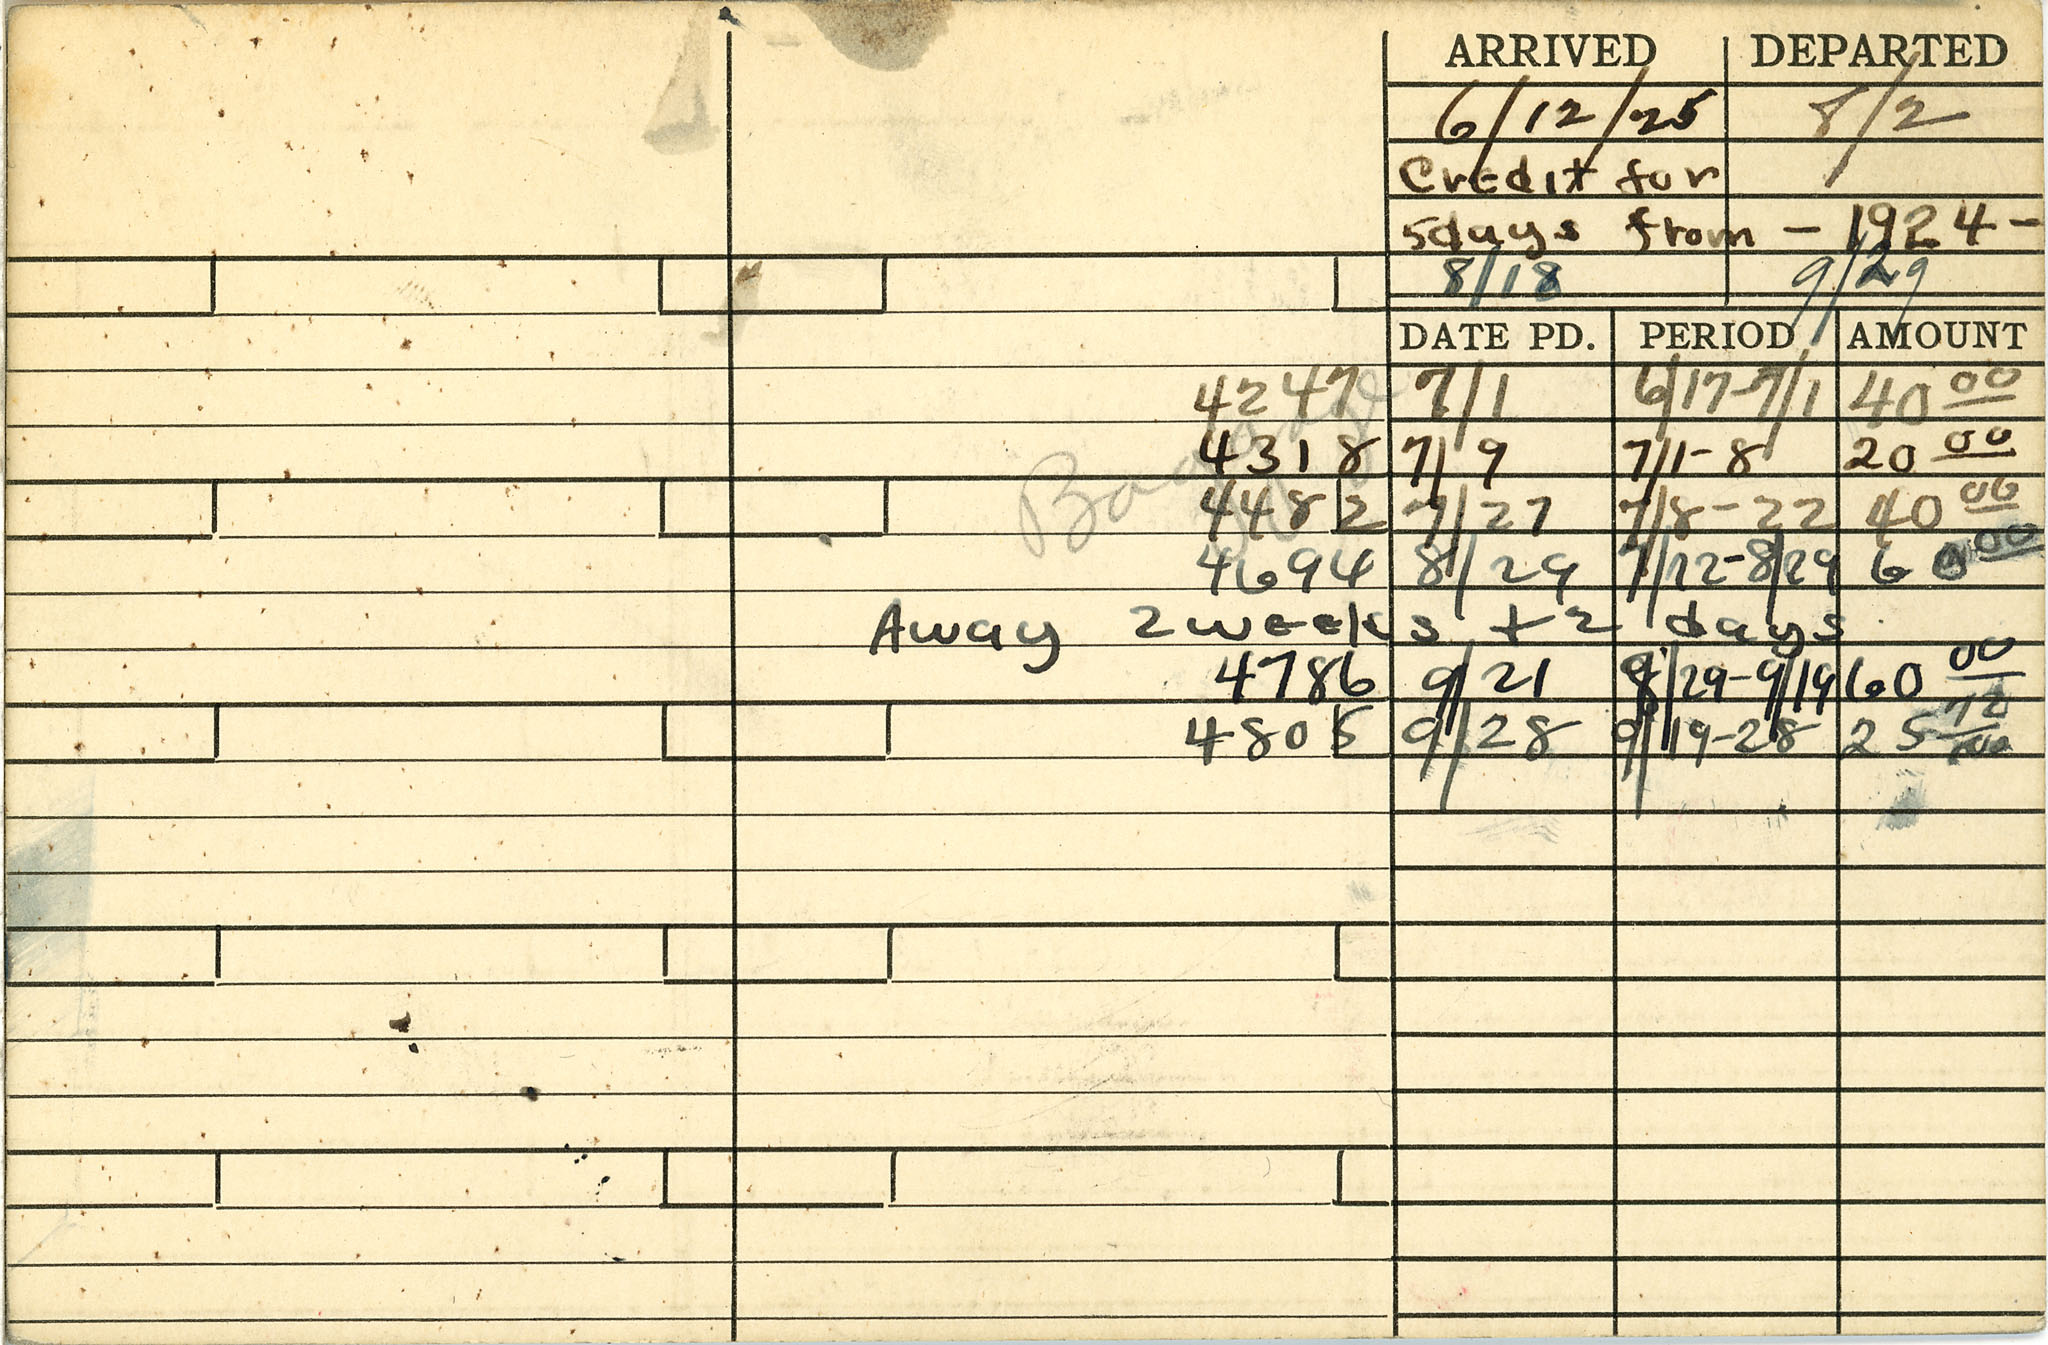 ARRIVED DEPARTED
6/12/25 8/2
Credit for
5days from - 1924 -
8/18 9/29
DATE PD. PERIOD AMOUNT
4247 7/1 6/17-7/1 40 00
4318 7/9 7/1-8 20 00
4482 7/27 7/8-22 40 00
4694 8/29 7/22-8/29 60 00
Away 2 weeks + 2 days
4786 9/21 8/29-9/19 60 00
4805 9/28 9/19-28 25 72